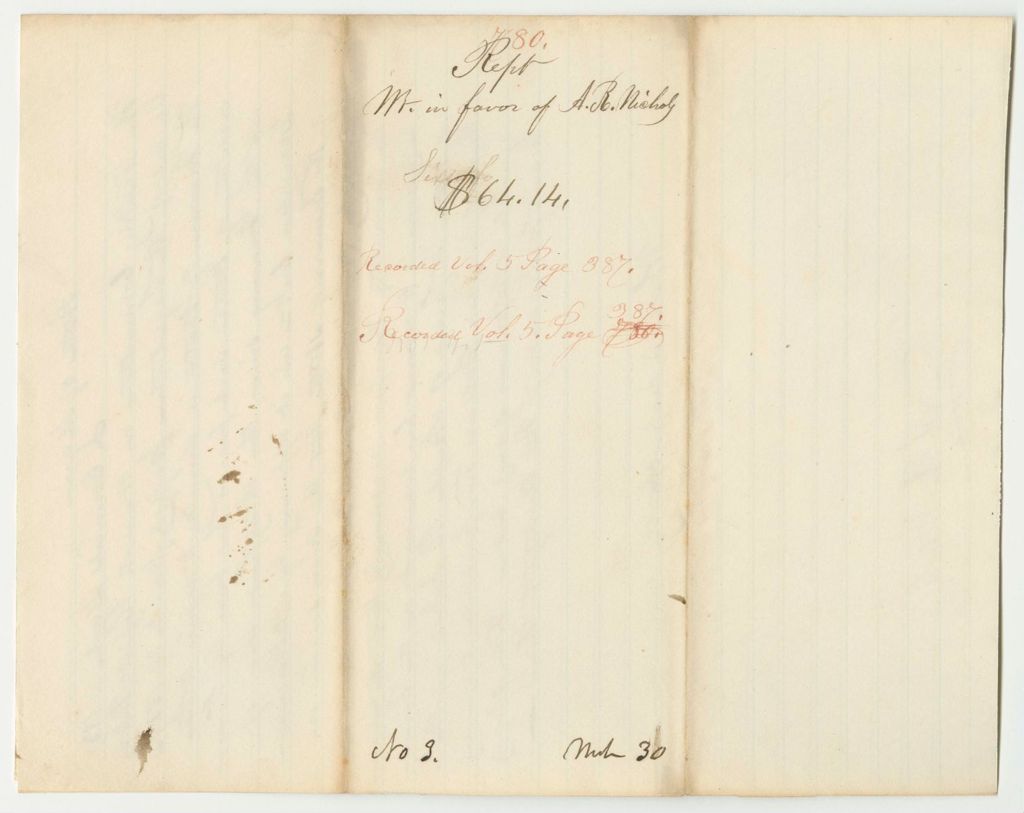 780.
Rept
Wt. in favor of A. R. Nichols
$64.14.
Recorded Vol. 5 Page 387.
387.
Recorded Vol. 5. Page 780.
No 3.
Mch 30